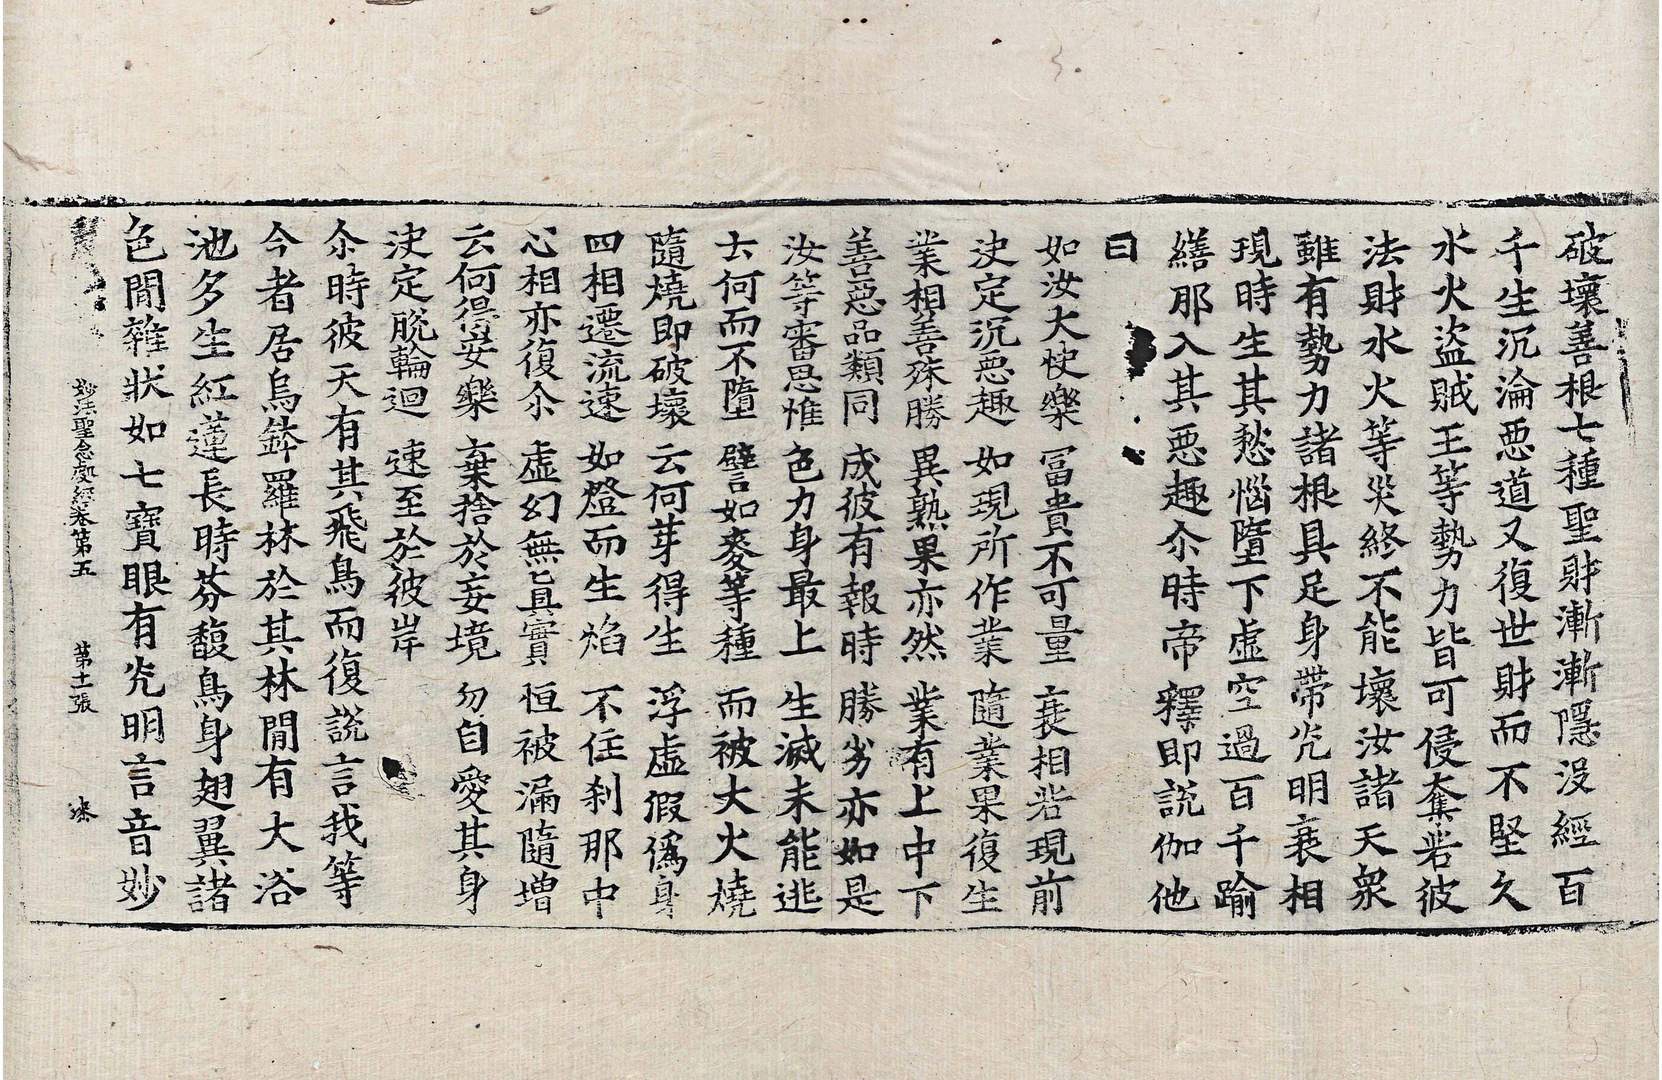 破壞善根七種聖財漸漸隱沒經百
千生沉淪惡道又復世財而不堅久
水火盜賊王等勢力皆可侵奪若彼
法財水火等災終不能壞汝諸天衆
雖有勢力諸根具足身帶光明衰相
現時生其愁惱墮下虛空過百千踰
繕那入其惡趣尒時帝釋即說伽他
曰
如汝大快樂 冨貴不可量 衰相若現前
決定沉惡趣 如現所作業 隨業果復生
業相善殊勝 異熟果亦然 業有上中下
善惡品類同 成彼有報時 勝劣亦如是
汝等審思惟 色力身最上 生滅未能逃
云何而不墮 譬如麥等種 而被大火燒
隨燒即破壞 云何芽得生 浮虛假僞身
四相遷流速 如燈而生焰 不住刹那中
心相亦復尒 虛幻無真實 恒被漏隨增
云何得安樂 棄捨於妄境 勿自愛其身
決定脫輪迴 速至於彼岸
尒時彼天有其飛鳥而復說言我等
今者居烏鉢羅林於其林間有大浴
池多生紅蓮長時芬馥鳥身翅翼諸
色間雜狀如七寶眼有光明言音妙
妙法聖念處經卷第五 第十一張